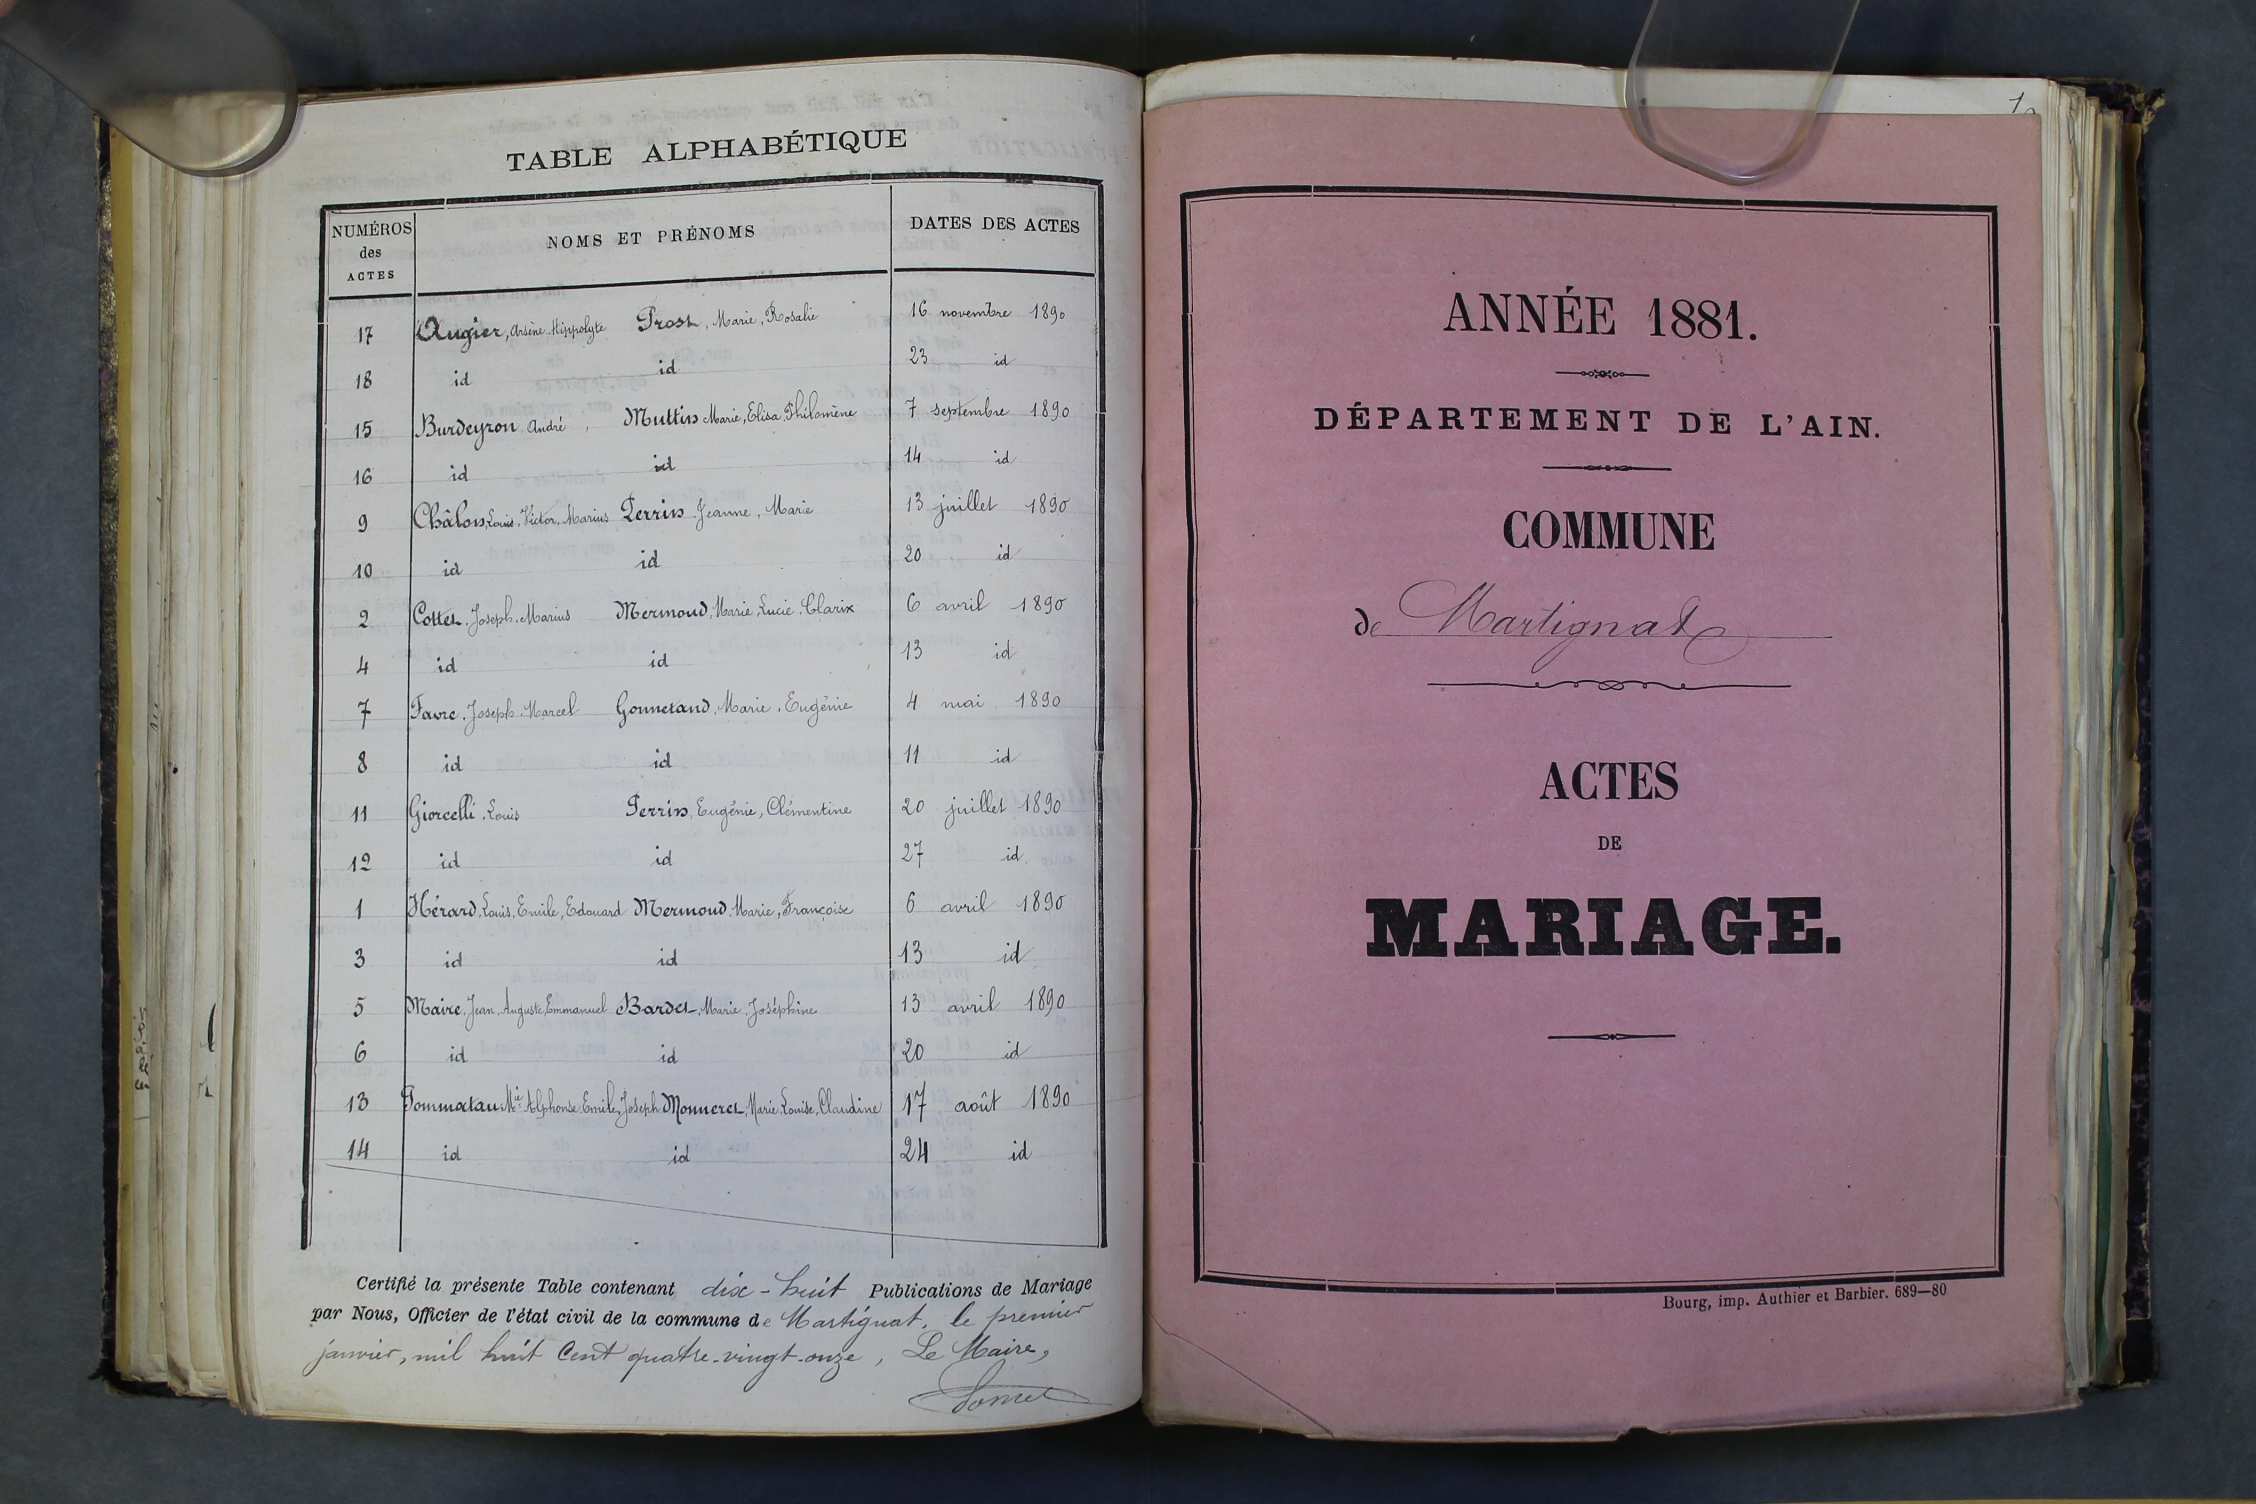 TABLE ALPHABÉTIQUE
NUMÉROS des ACTES NOMS ET PRÉNOMS DATES DES ACTES
17 Augier, Arsène Hippolyte Prost, Marie, Rosalie 16 novembre 1890
18 id id 23 id
15 Burdeyron André, Muttin Marie, Elisa, Philomène 7 septembre 1890
16 id id 14 id
9 Châlon, Louis, Victor, Marius Perrin Jeanne, Marie 13 juillet 1890
10 id id 20 id
2 Cottet, Joseph, Marius Mermoud, Marie, Lucie, Clarix 6 avril 1890
4 id id 13 id
7 Favre, Joseph, Marcel Gonnetand, Marie, Eugénie 4 mai 1890
8 id id 11 id
11 Giorcelli, Louis Perrin, Eugénie, Clémentine 20 juillet 1890
12 id id 27 id
1 Hérard, Louis, Emile, Edouard Mermoud, Marie, Françoise 6 avril 1890
3 id id 13 id
5 Maire, Jean, Auguste, Emmanuel Bardet, Marie, Joséphine 13 avril 1890
6 id id 20 id
13 Pommatau Mie Alphonse Emile, Joseph Monneret, Marie, Louise, Claudine 17 août 1890
14 id id 24 id
Certifié la présente Table contenant dix-huit Publications de Mariage
par Nous, Officier de l'état civil de la commune de Martignat, le premier
janvier, mil huit cent quatre-vingt-onze, Le Maire,
1
ANNÉE 1881.
DÉPARTEMENT DE L'AIN.
COMMUNE
de Martignat
ACTES
DE
MARIAGE.
Bourg, imp. Authier et Barbier. 689—80